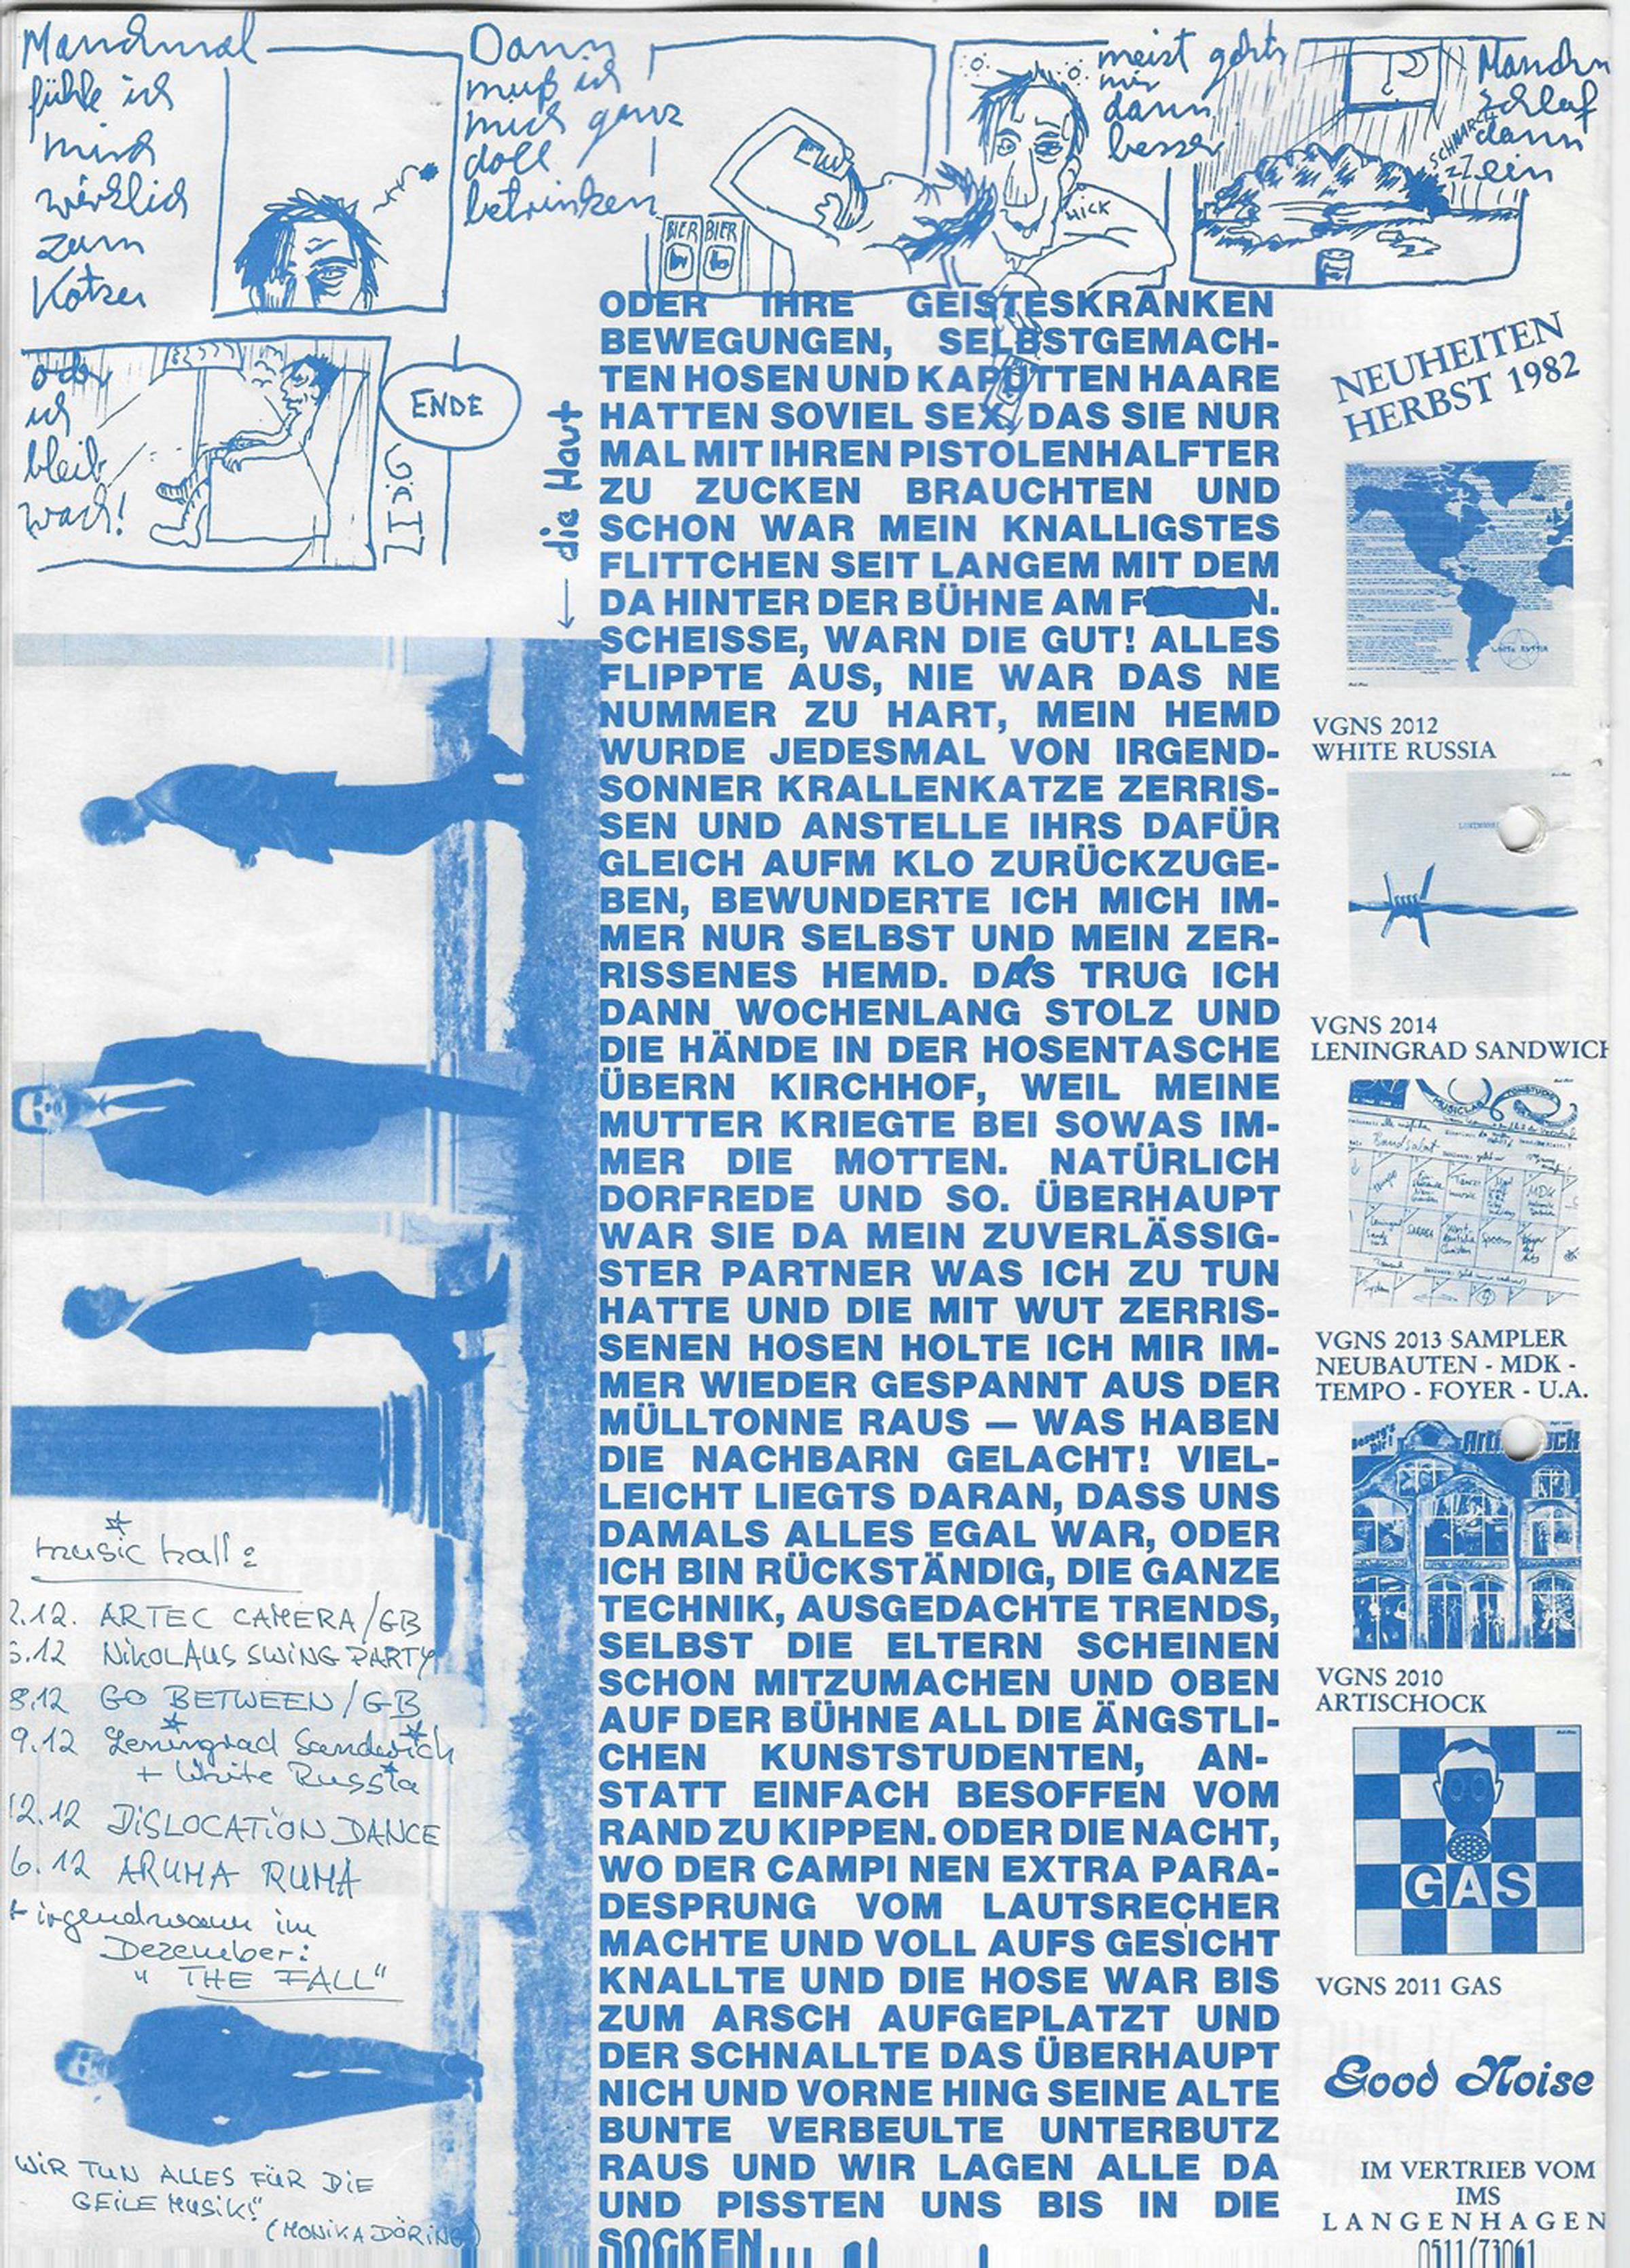 Manchmal
fühle ich
mich
wirklich
zum
Kotzen
Dann
muß ich
mich ganz
doll
betrinken
BIER BIER
HICK
meist gehts
mir
dann
besser
SCHNARCH
Manchm
schlaf
dann
ein
oder
ich
bleib
wach!
ENDE
die Haut
ODER IHRE GEISTESKRANKEN
BEWEGUNGEN, SELBSTGEMACH-
TEN HOSEN UND KAPUTTEN HAARE
HATTEN SOVIEL SEX, DAS SIE NUR
MAL MIT IHREN PISTOLENHALFTER
ZU ZUCKEN BRAUCHTEN UND
SCHON WAR MEIN KNALLIGSTES
FLITTCHEN SEIT LANGEM MIT DEM
DA HINTER DER BÜHNE AM F N.
SCHEISSE, WARN DIE GUT! ALLES
FLIPPTE AUS, NIE WAR DAS NE
NUMMER ZU HART, MEIN HEMD
WURDE JEDESMAL VON IRGEND-
SONNER KRALLENKATZE ZERRIS-
SEN UND ANSTELLE IHRS DAFÜR
GLEICH AUFM KLO ZURÜCKZUGE-
BEN, BEWUNDERTE ICH MICH IM-
MER NUR SELBST UND MEIN ZER-
RISSENES HEMD. DAS TRUG ICH
DANN WOCHENLANG STOLZ UND
DIE HÄNDE IN DER HOSENTASCHE
ÜBERN KIRCHHOF, WEIL MEINE
MUTTER KRIEGTE BEI SOWAS IM-
MER DIE MOTTEN. NATÜRLICH
DORFREDE UND SO. ÜBERHAUPT
WAR SIE DA MEIN ZUVERLÄSSIG-
STER PARTNER WAS ICH ZU TUN
HATTE UND DIE MIT WUT ZERRIS-
SENEN HOSEN HOLTE ICH MIR IM-
MER WIEDER GESPANNT AUS DER
MÜLLTONNE RAUS — WAS HABEN
DIE NACHBARN GELACHT! VIEL-
LEICHT LIEGTS DARAN, DASS UNS
DAMALS ALLES EGAL WAR, ODER
ICH BIN RÜCKSTÄNDIG, DIE GANZE
TECHNIK, AUSGEDACHTE TRENDS,
SELBST DIE ELTERN SCHEINEN
SCHON MITZUMACHEN UND OBEN
AUF DER BÜHNE ALL DIE ÄNGSTLI-
CHEN KUNSTSTUDENTEN, AN-
STATT EINFACH BESOFFEN VOM
RAND ZU KIPPEN. ODER DIE NACHT,
WO DER CAMPI NEN EXTRA PARA-
DESPRUNG VOM LAUTSRECHER
MACHTE UND VOLL AUFS GESICHT
KNALLTE UND DIE HOSE WAR BIS
ZUM ARSCH AUFGEPLATZT UND
DER SCHNALLTE DAS ÜBERHAUPT
NICH UND VORNE HING SEINE ALTE
BUNTE VERBEULTE UNTERBUTZ
RAUS UND WIR LAGEN ALLE DA
UND PISSTEN UNS BIS IN DIE
SOCKEN
music hall:
2.12. ARTEC CAMERA/GB
6.12 NIKOLAUS SWING PARTY
8.12 GO BETWEEN/GB
9.12 Leningrad Sandwich
+ White Russia
12.12 DISLOCATION DANCE
6.12 ARUMA RUMA
+ irgendwann im
Dezember:
"THE FALL"
WIR TUN ALLES FÜR DIE
GEILE MUSIK!"
(MONIKA DÖRING)
NEUHEITEN
HERBST 1982
WHITE RUSSIA
VGNS 2012
WHITE RUSSIA
VGNS 2014
LENINGRAD SANDWICH
MUSICLAB
TONSTUDIO
Bandsalat
MDK
VGNS 2013 SAMPLER
NEUBAUTEN - MDK -
TEMPO - FOYER - U.A.
Besorg's
Dir!
VGNS 2010
ARTISCHOCK
GAS
VGNS 2011 GAS
Good Noise
IM VERTRIEB VOM
IMS
LANGENHAGEN
0511/73061